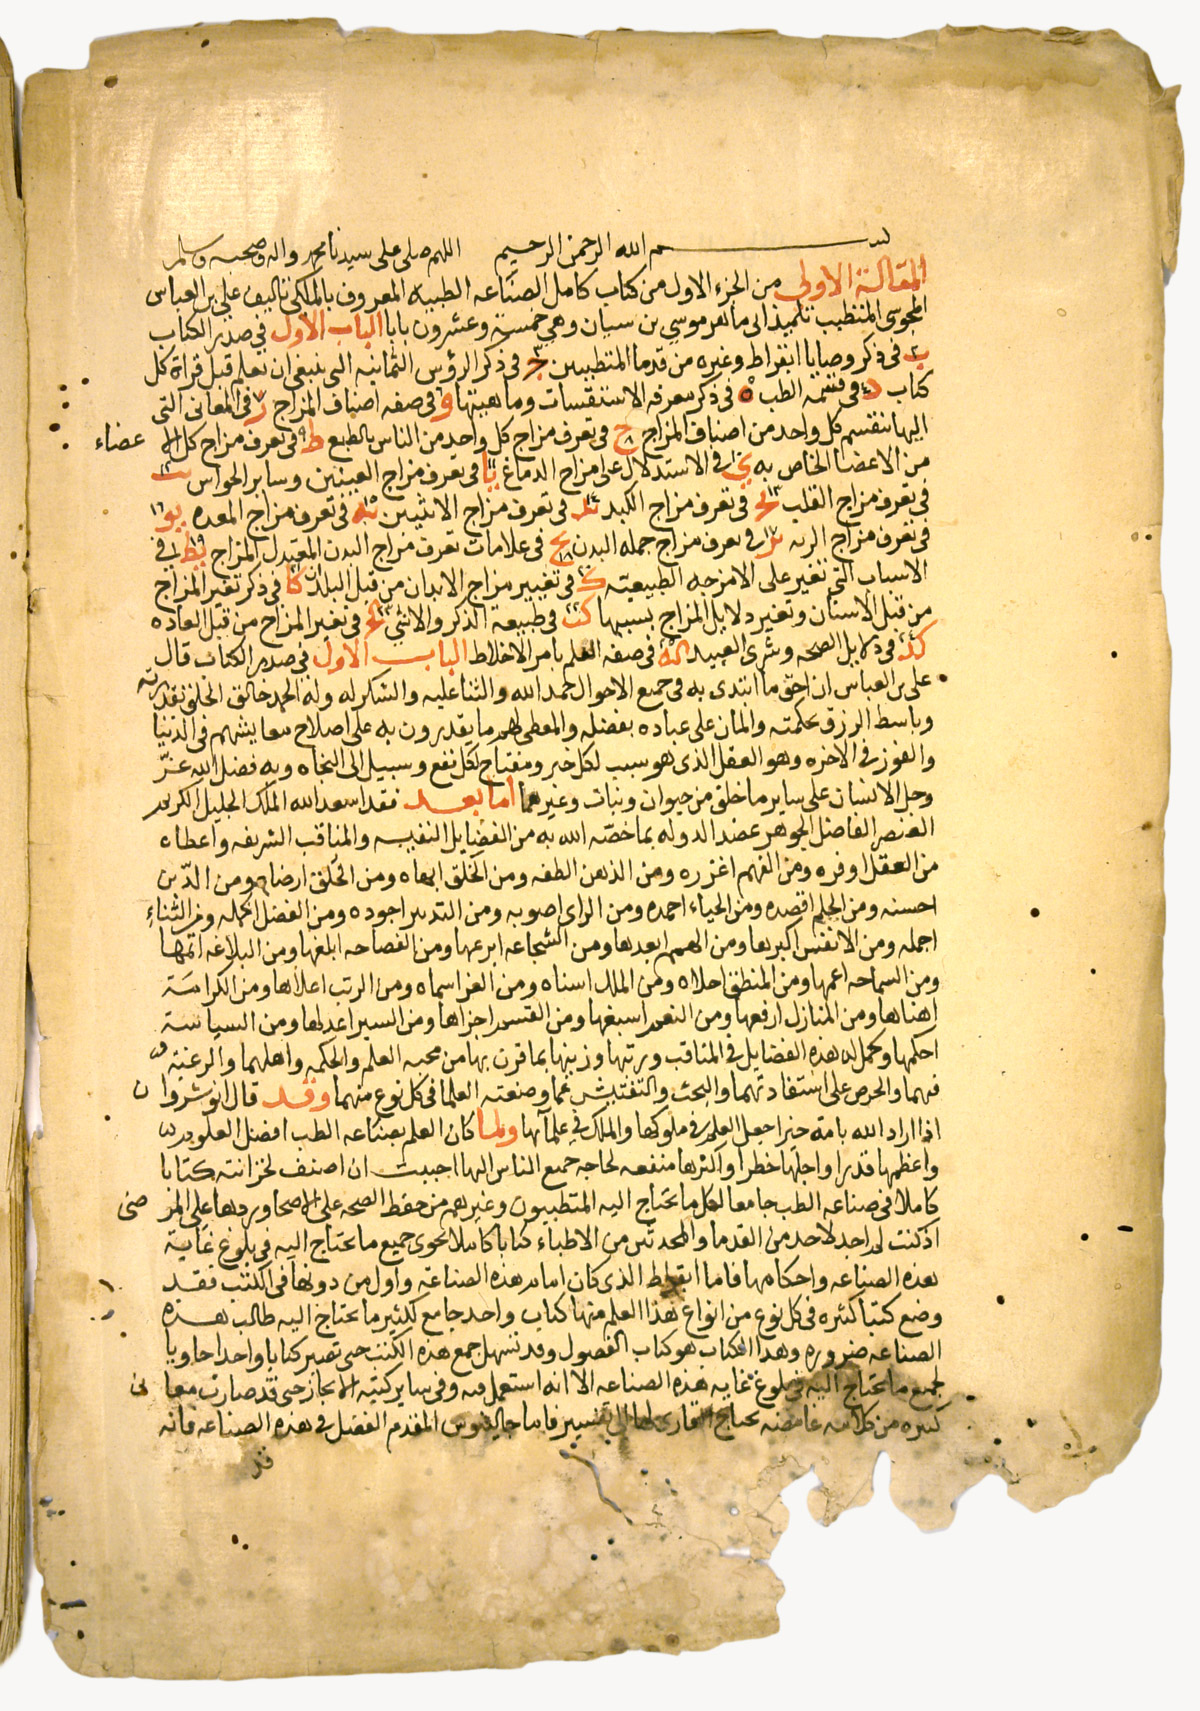 بسم الله الرحمن الرحيم اللهم صلى على سيدنا محمد واله وصحبه وسلم
المقالة الاولى من الجزء الاول من كتاب كامل الصناعه الطبيه المعروف بالملكى تاليف على بن العباس
المجوسى المتطبب تلميذ ابى ماهر موسى بن سيان وهى خمسة وعشرون بابا الباب الاول فى صدر الكتاب
ب فى ذكر وصايا ابقراط وغيره من قدما المتطببين ج فى ذكر الرؤس الثمانيه التى ينبغى ان تعلم قبل قراة كل
كتاب د فى قسمه الطب ه فى ذكر معرفه الاستقسات وماهيتها و فى صفه اصناف المزاج ز فى المعانى التى
اليها ينقسم كل واحد من اصناف المزاج ح فى تعرف مزاج كل واحد من الناس بالطبع ط فى تعرف مزاج كل الاعضاء
من الاعضا الخاص به ى فى الاستدلال على مزاج الدماغ يا فى تعرف مزاج العينين وساير الحواس يب
فى تعرف مزاج القلب يج فى تعرف مزاج الكبد يد فى تعرف مزاج الانثيين يه فى تعرف مزاج المعده يو
فى تعرف مزاج الريه يز فى تعرف مزاج جمله البدن يح فى علامات تعرف مزاج البدن المعتدل المزاج يط فى
الاسباب التى تغير على الامزجه الطبيعيه ك فى تغيير مزاج الابدان من قبل البلدان كا فى ذكر تغير المزاج
من قبل الاسنان وتغير دلايل المزاج بسببها كب فى طبيعة الذكر والانثى كج فى تغير المزاج من قبل العاده
كد فى دلايل الصحه وشرى العبيد كه فى صفه العلم بامر الاخلاط الباب الاول فى صدر الكتاب قال
على بن العباس ان احق ما ابتدى به فى جميع الاحوال حمد الله والثنا عليه والشكر له وله الحمد خالق الخلق بقدرته
وباسط الرزق بحكمته والمان على عباده بفضله والمعطى لهم ما يقدرون به على اصلاح معايشهم فى الدنيا
والفوز فى الاخره وهو العقل الذى هو سبب لكل خير ومفتاح لكل نفع وسبيل الى النجاه وبه فضل الله عز
وجل الانسان على ساير ما خلق من حيوان ونبات وغيرهما اما بعد فقد اسعد الله الملك الجليل الكريم
العنصر الفاضل الجوهر عضد الدوله بما خصه الله به من الفضايل النفيسه والمناقب الشريفه واعطاه
من العقل اوفره ومن الفهم اغزره ومن الذهن الطفه ومن الخلق ابهاه ومن الخلق ارضاه ومن الدين
احسنه ومن الحلم اقصده ومن الحياء احمده ومن الراى اصوبه ومن التدبير اجوده ومن الفضل اكمله ومن الثناء
اجمله ومن الانفس اكبرها ومن الهمم ابعدها ومن الشجاعه ابرعها ومن الفصاحه ابلغها ومن البلاغه اتمها
ومن السماحه اعمها ومن المنطق احلاه ومن الملك اسناه ومن العز اسماه ومن الرتب اعلاها ومن الكرامة
اهناها ومن المنازل ارفعها ومن النعم اسبغها ومن القسم اجزاها ومن السير اعدلها ومن السياسة
احكمها وكمل له هذه الفضايل فى المناقب ورتبها وزينها بما قرن بها من محبه العلم والحكمه واهلهما والرغبة
فيهما والحرص على استفادتهما والبحث والتفتيش عما وصنعته العلما فى كل نوع منهما وقد قال انوشروان
اذا اراد الله بامة خيرا جعل العلم فى ملوكها والملك فى علمآئها ولما كان العلم بصناعه الطب افضل العلوم
واعظمها قدرا واجلها خطرا واكثرها منفعه لحاجه جميع الناس اليها احببت ان اصنف لخزانته كتابا
كاملا فى صناعه الطب جامعا لكل ما يحتاج اليه المتطببون وغيرهم من حفظ الصحه على الاصحا وردها على المرضى
اذ كنت لم اجد لاحد من القدما والمحدثين من الاطباء كتابا كاملا يحوى جميع ما يحتاج اليه فى بلوغ غاية
هذه الصناعه واحكامها فاما ابقراط الذى كان امام هذه الصناعه واول من دونها فى الكتب فقد
وضع كتبا كثيره فى كل نوع من انواع هذا العلم منها كتاب واحد جامع لكثير ما يحتاج اليه طالب هذه
الصناعه ضروره وهذا الكتاب هو كتاب الفصول وقد تسهل جمع هذه الكتب حتى تصير كتابا واحدا حاويا
لجميع ما يحتاج اليه فى بلوغ غايه هذه الصناعه الا انه استعمل فيه وفى ساير كتبه الايجاز حتى قد صارت معانى
كثيره من كلامه غامضه يحتاج القارى لها الى تفسير فاما جالينوس المقدم الفضل فى هذه الصناعه فانه
قد